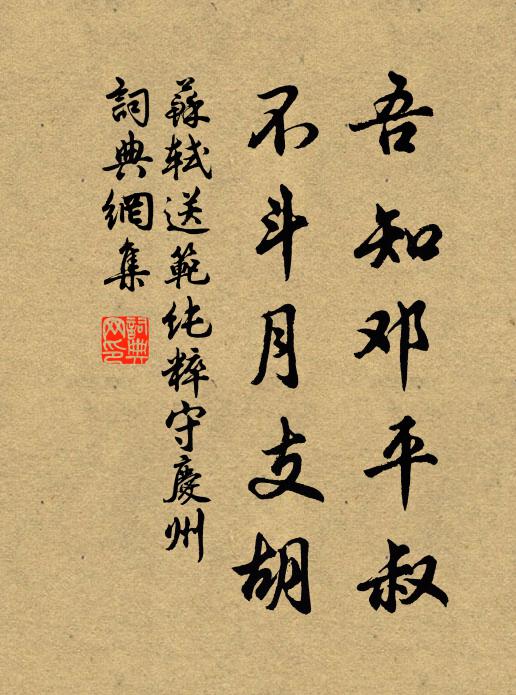 吾知邓平叔
不斗月支胡
蘇軾送範純粹守慶州
詞典網集
詞典网印